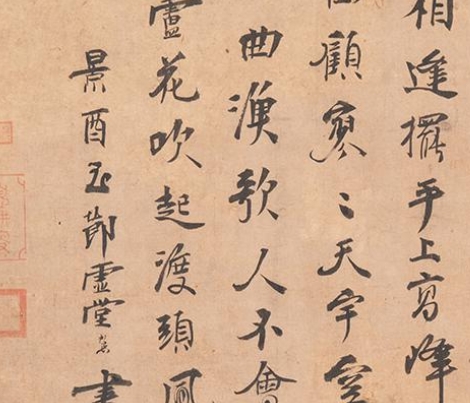 相逢擺手上高峰
四顧寥〻天宇空
曲漁歌人不會
蘆花吹起渡頭風
景酉至節虛堂愚書